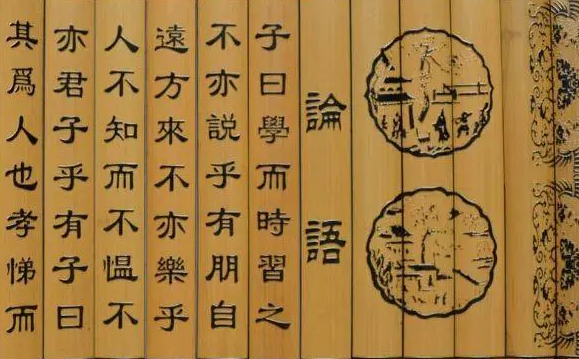 論語
子曰學而時習之
不亦説乎有朋自
遠方來不亦樂乎
人不知而不愠不
亦君子乎有子曰
其爲人也孝悌而